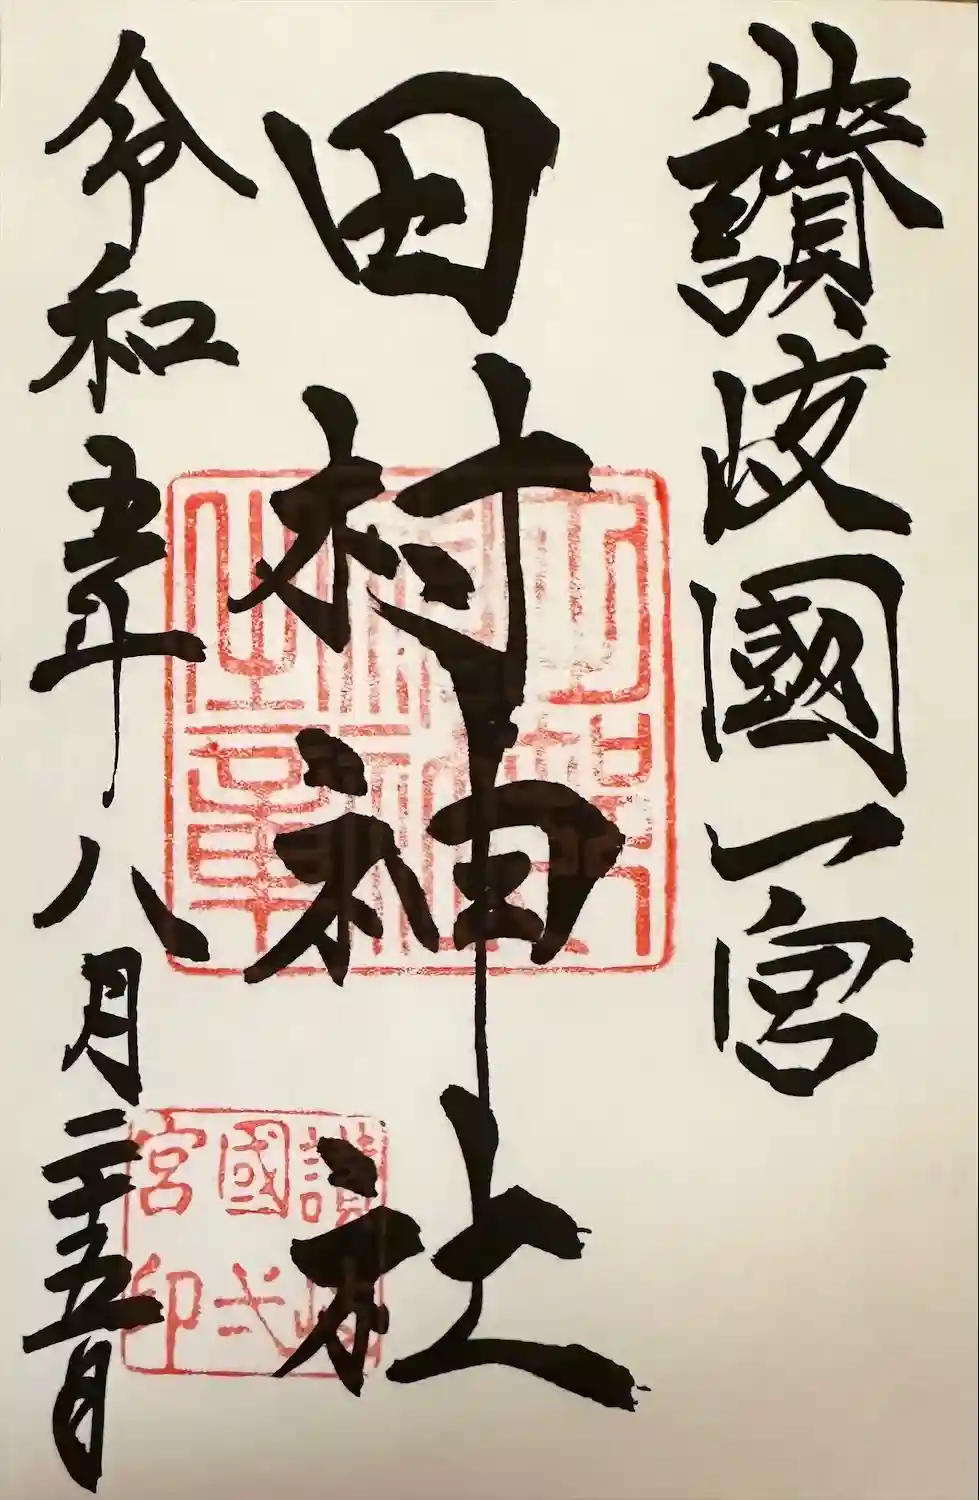 讃岐國一宮
田村神社
令和五年八月二十五日
讃岐
國弌
宮印